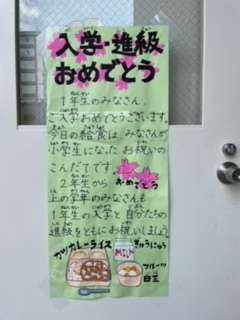 入学・進級
おめでとう
1年生のみなさん、
ご入学おめでとうございます。
今日の給食は、みなさんが
小学生になったお祝いの
こんだてです。
おめでとう
2年生から
上の学年のみなさんも
1年生の入学と自分たちの
進級をともにお祝いしましょう。
カツカレーライス
ぎゅうにゅう
MILK
フルーツ
白玉